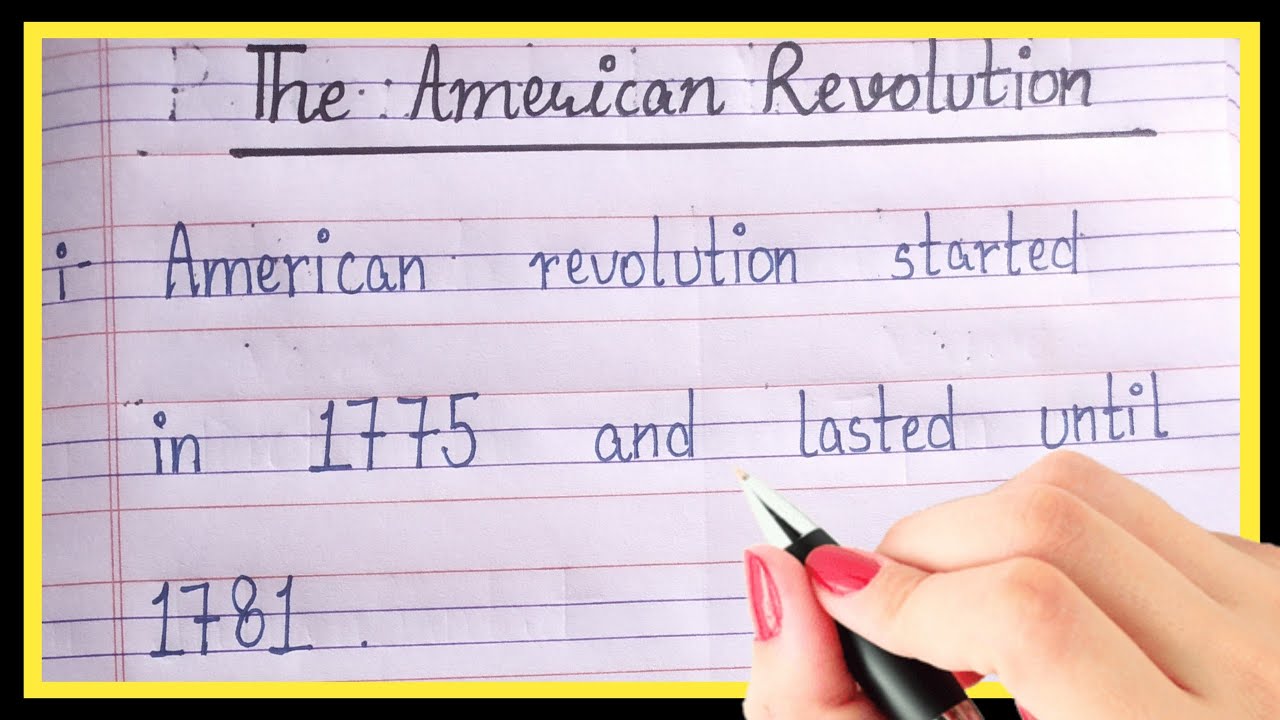 The American Revolution
i- American revolution started
in 1775 and lasted until
1781.